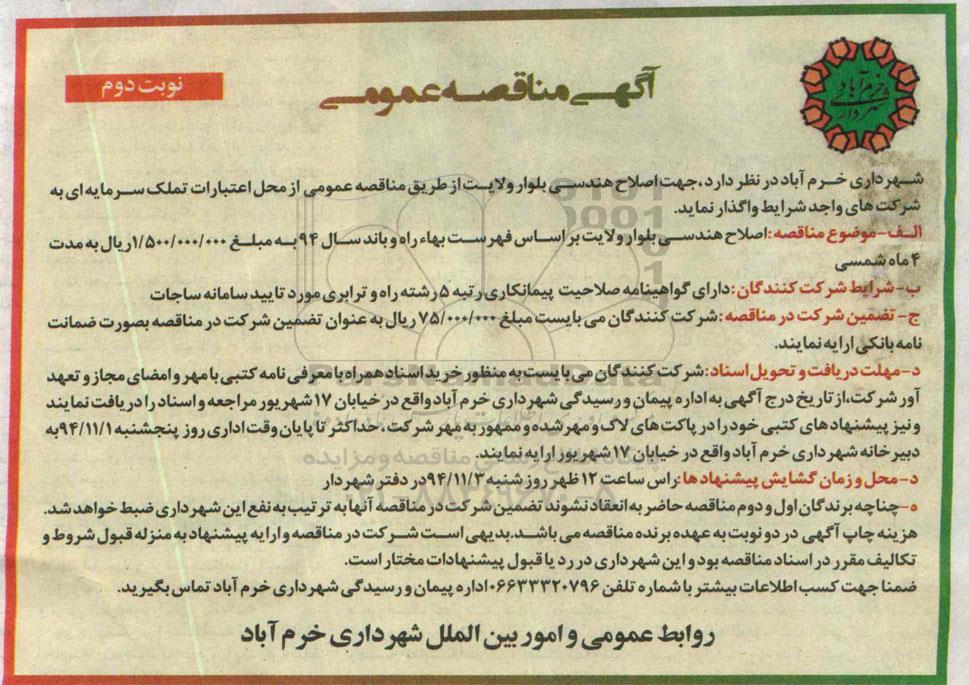 خرم آباد
شهرداری
نوبت دوم
آگهی مناقصه عمومی
شهرداری خرم آباد در نظر دارد، جهت اصلاح هندسی بلوار ولایت از طریق مناقصه عمومی از محل اعتبارات تملک سرمایه ای به
شرکت های واجد شرایط واگذار نماید.
الف-موضوع مناقصه: اصلاح هندسی بلوار ولایت بر اساس فهرست بهاء راه و باند سال ۹۴ به مبلغ ۱/۵۰۰/۰۰۰/۰۰۰ ریال به مدت
۴ ماه شمسی
ب-شرایط شرکت کنندگان: دارای گواهینامه صلاحیت پیمانکاری رتبه ۵ رشته راه و ترابری مورد تایید سامانه ساجات
ج- تضمین شرکت در مناقصه: شرکت کنندگان می بایست مبلغ ۷۵/۰۰۰/۰۰۰ ریال به عنوان تضمین شرکت در مناقصه بصورت ضمانت
نامه بانکی ارایه نمایند.
د-مهلت دریافت و تحویل اسناد: شرکت کنندگان می بایست به منظور خرید اسناد همراه با معرفی نامه کتبی با مهر و امضای مجاز و تعهد
آور شرکت، از تاریخ درج آگهی به اداره پیمان و رسیدگی شهرداری خرم آباد واقع در خیابان ۱۷ شهریور مراجعه و اسناد را دریافت نمایند
و نیز پیشنهادهای کتبی خود را در پاکت های لاک و مهر شده و ممهور به مهر شرکت، حداکثر تا پایان وقت اداری روز پنجشنبه ۹۴/۱۱/۱ به
دبیرخانه شهرداری خرم آباد واقع در خیابان ۱۷ شهریور ارایه نمایند.
د-محل و زمان گشایش پیشنهادها: راس ساعت ۱۲ ظهر روز شنبه ۹۴/۱۱/۳ در دفتر شهردار
ه-چناچه برندگان اول و دوم مناقصه حاضر به انعقاد نشوند تضمین شرکت در مناقصه آنها به ترتیب به نفع این شهرداری ضبط خواهد شد.
هزینه چاپ آگهی در دو نوبت به عهده برنده مناقصه می باشد. بدیهی است شرکت در مناقصه و ارایه پیشنهاد به منزله قبول شروط و
تکالیف مقرر در اسناد مناقصه بود و این شهرداری در رد یا قبول پیشنهادات مختار است.
ضمنا جهت کسب اطلاعات بیشتر با شماره تلفن ۰۶۶۳۳۳۲۰۷۹۶ اداره پیمان و رسیدگی شهرداری خرم آباد تماس بگیرید.
روابط عمومی و امور بین الملل شهرداری خرم آباد